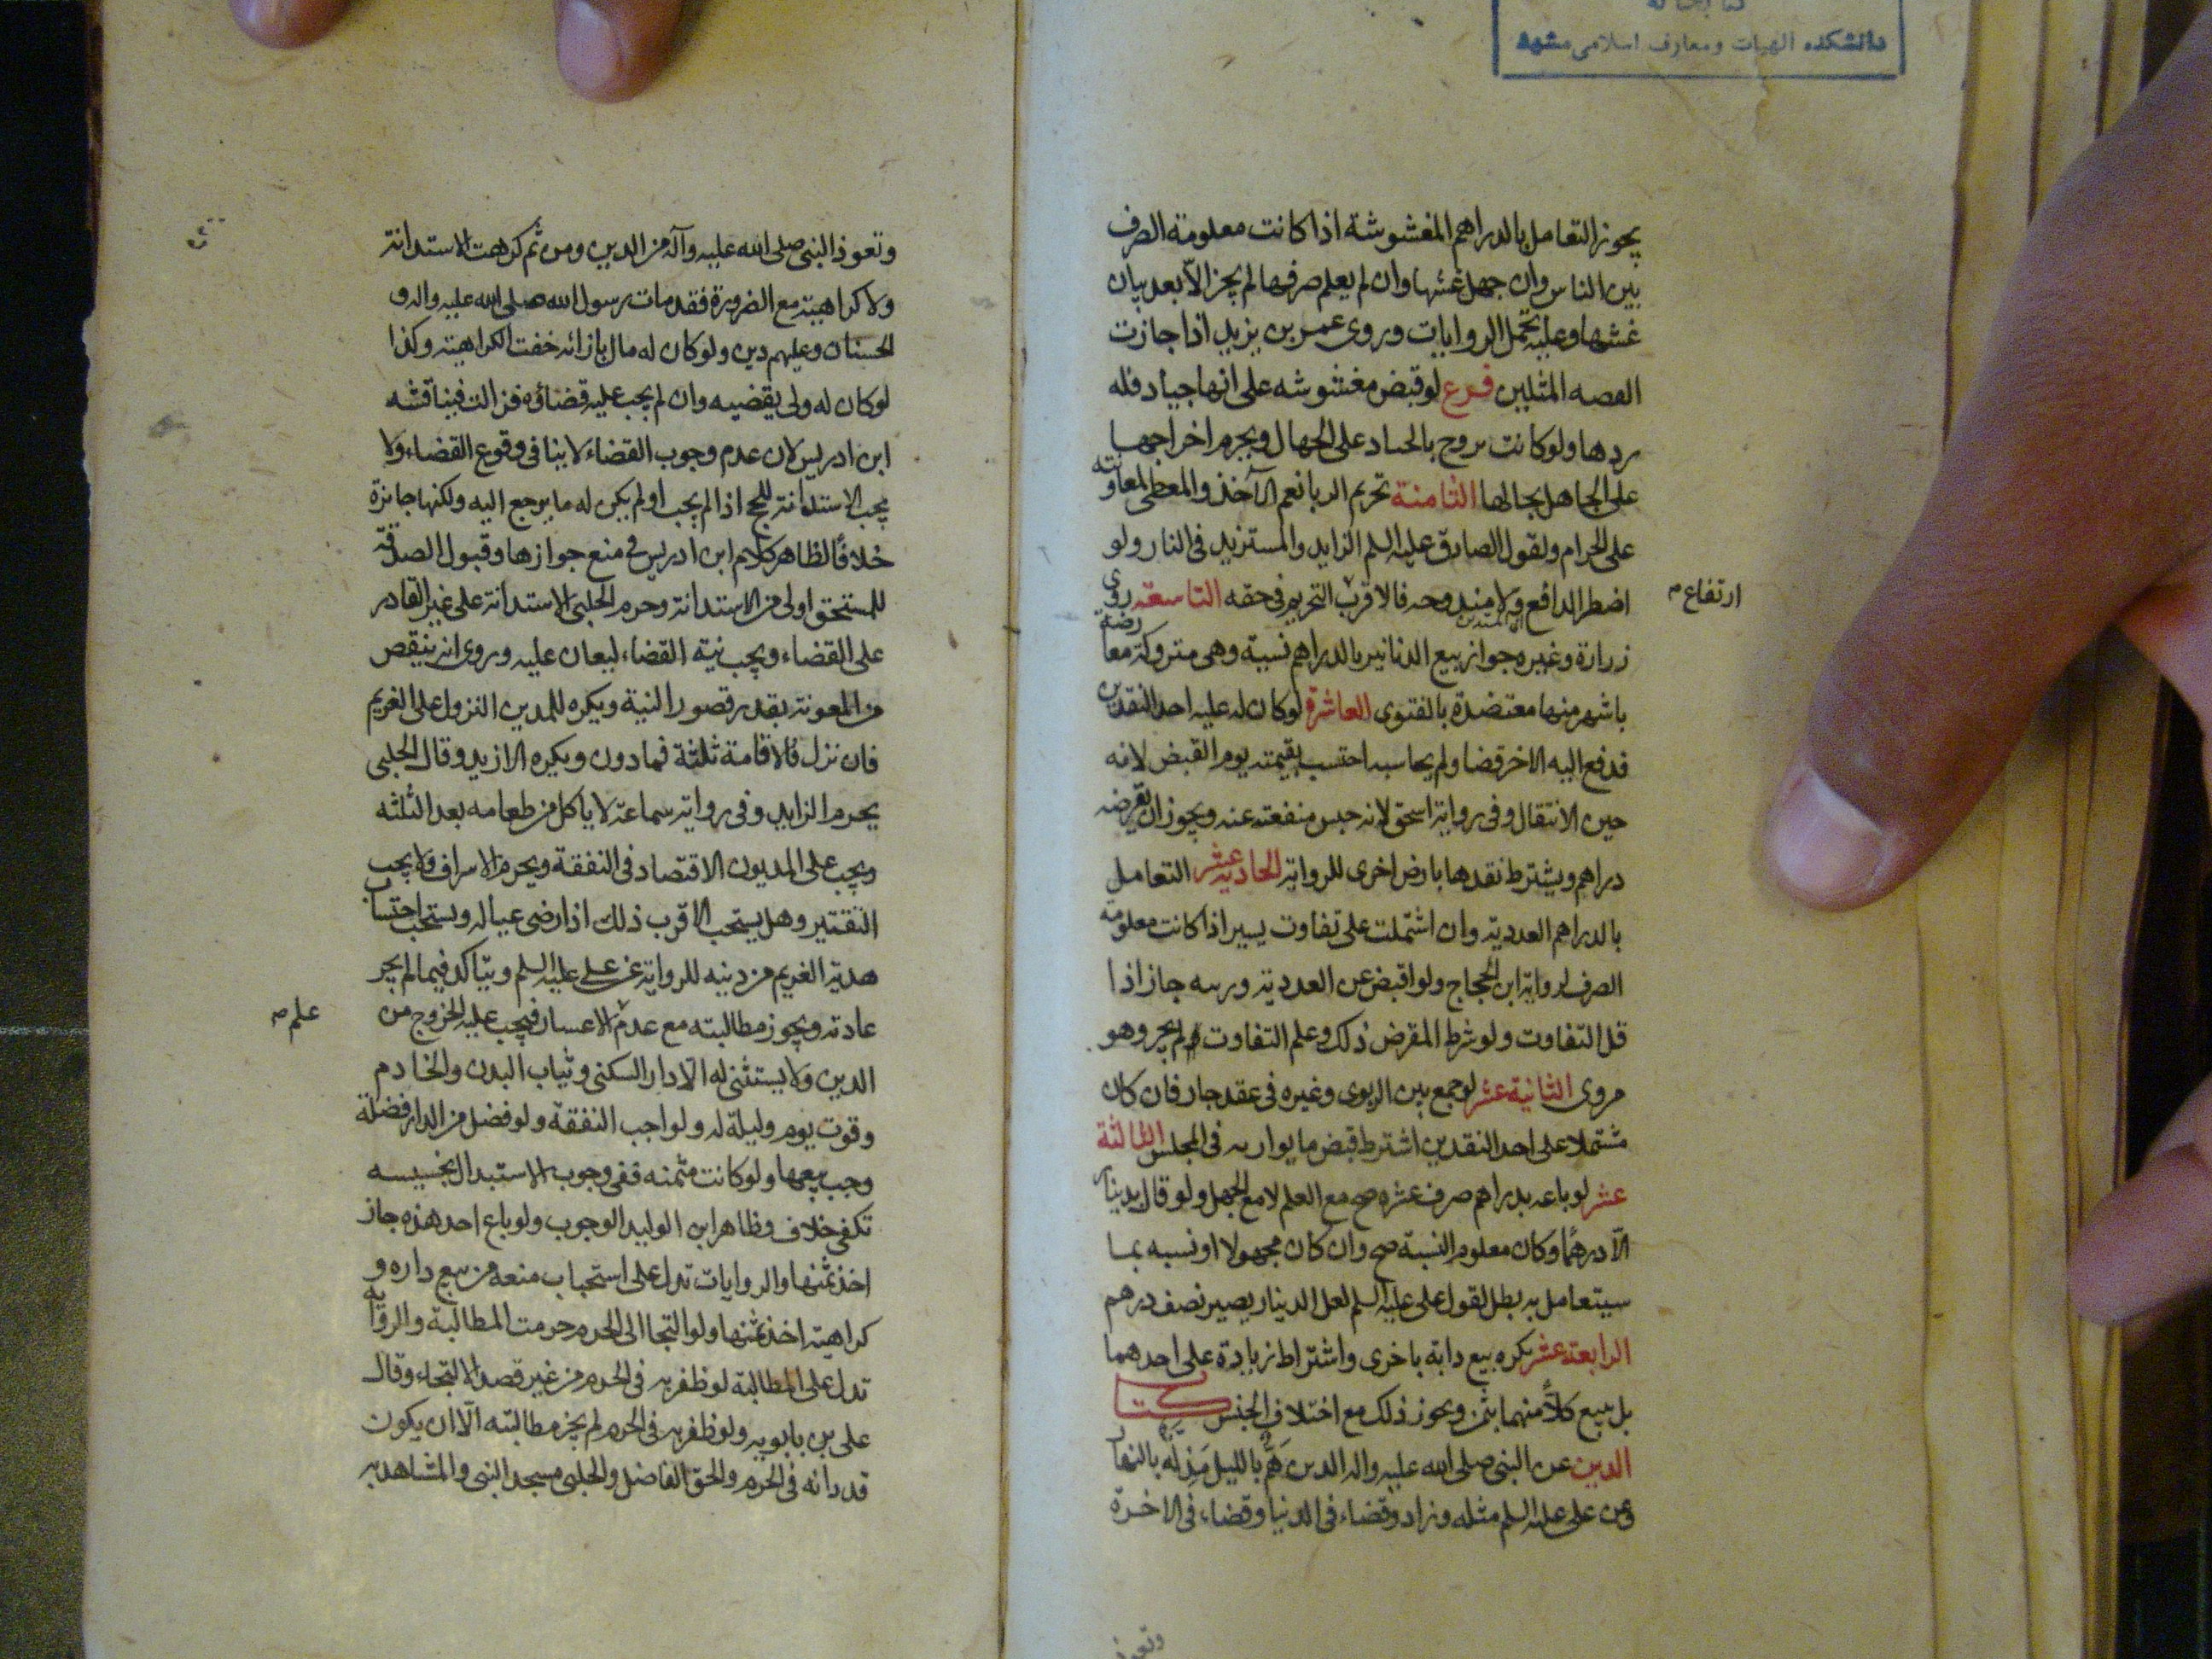 كتابخانه
دانشكده الهيات ومعارف اسلامى مشهد
يجوز التعامل بالدراهم المغشوشة اذا كانت معلومة الصرف
بين الناس وان جهل غشها وان لم يعلم صرفها لم يجز الا بعد بيان
غشها وعليه تحمل الروايات وروى عمر بن يزيد اذا جازت
الفصه المثلين فرع لو قبض مغشوشه على انها جياد فله
ردها ولو كانت تروج بالحساد على الجهال ويحرم اخراجها
على الجاهل بحالها الثامنة تحريم الربا نعم الآخذ والمعطى لمعاونته
على الحرام ولقول الصادق عليه السلم الزايد والمستزيد فى النار ولو
اضطر الدافع ولا مندوحه فالاقرب التحريم فى حقه التاسعة روى
ارتفاع م
زرارة وغيره جواز بيع الدنانير بالدراهم نسية وهى متروكة معارضة
باشهر منها معتضدة بالفتوى العاشرة لو كان له عليه احد النقدين
فدفع اليه الاخر قضا ولم يحاسبه احتسب بقيمته يوم القبض لانه
حين الانتقال وفى رواية اسحق لانه حبس منفعته عنه ويجوز ان يقرضه
دراهم ويشترط نقدها بارض اخرى للرواية الحادية عشر التعامل
بالدراهم العددية وان اشتملت على تفاوت يسير اذا كانت معلومة
الصرف لرواية ابن الحجاج ولو اقبض عن العددية وزنه جاز اذا
قل التفاوت ولو شرط المقرض ذلك وعلم التفاوت لم يجز وهو
مروى الثانية عشر لو جمع بين الربوى وغيره فى عقد جاز فان كان
مشتملا على احد النقدين اشترط قبض ما يوازيه فى المجلس الثالثة
عشر لو باعه بدراهم صرف عشره صح مع العلم لا مع الجهل ولو قال بدينار
الّا درهمًا وكان معلوم النسبة صح وان كان مجهولا او نسبه بما
سيتعامل به بطل لقول على عليه السلم لعل الدينار يصير نصف درهم
الرابعة عشر يكره بيع دابة باخرى واشتراط زيادة على احدهما
بل بيع كلًا منهما بثمن ويجوز ذلك مع اختلاف الجنس كتاب
الدين عن النبى صلى الله عليه واله الدين هَمٌّ بالليل مَذِلّه بالنهار
وعن على عليه السلم مثله وزاد وقضاء فى الدنيا وقضاء فى الاخرة
وتعوذ
وتعوذ النبى صلى الله عليه وآله من الدين ومن ثم كرهت الاستدانة
ولا كراهية مع الضرورة فقد مات رسول الله صلى الله عليه واله و
الحسنان وعليهم دين ولو كان له مال بازائه خفت الكراهية وكذا
لو كان له ولى يقضيه وان لم يجب عليه قضاؤه فزالت فيناقشه
ابن ادريس لان عدم وجوب القضاء لا ينافى وقوع القضاء ولا
يجب الاستدانة للحج اذا لم يجب او لم يكن له ما يرجع اليه ولكنها جائزة
خلافًا لظاهر كلام ابن ادريس فى منع جوازها وقبول الصدقة
للمستحق اولى من الاستدانة وحرم الحلبى الاستدانة على غير القادر
على القضاء ويجب نية القضاء ليعان عليه وروى انه ينقص
من المعونة بقدر قصور النية ويكره للمدين النزول على الغريم
فان نزل فالاقامة ثلثة فمادون ويكره الازيد وقال الحلبى
يحرم الزايد وفى رواية سماعة لا ياكل من طعامه بعد الثلثه
ويجب على المديون الاقتصاد فى النفقة ويحرم الاسراف ولا يجب
التقتير وهل يستحب الاقرب ذلك اذا رضى عياله ويستحب احتساب
هدية الغريم من دينه للرواية عن على عليه السلم ويتاكد فيما لم يجر
عادته ويجوز مطالبته مع عدم الاعسار فيجب عليه الخروج من
علم م
الدين ولا يستثنى له الا دار السكنى وثياب البدن والخادم
وقوت يوم وليلة له ولواجب النفقة ولو فضل من الدار فضلة
وجب بيعها ولو كانت مثمنه ففى وجوب الاستبدال بخسيسه
تكفى خلاف وظاهر ابن الوليد الوجوب ولو باع احد هذه جاز
اخذ ثمنها والروايات تدل على استحباب منعه من بيع داره و
كراهية اخذ ثمنها ولو التجا الى الحرم حرمت المطالبة والرواية
تدل على المطالبة لو ظفر به فى الحرم من غير قصد الالتجاء وقال
على بن بابويه ولو ظفر به فى الحرم لم يجز مطالبته الّا ان يكون
قد ادانه فى الحرم والحق الفاضل والحلبى مسجد النبى والمشاهد به